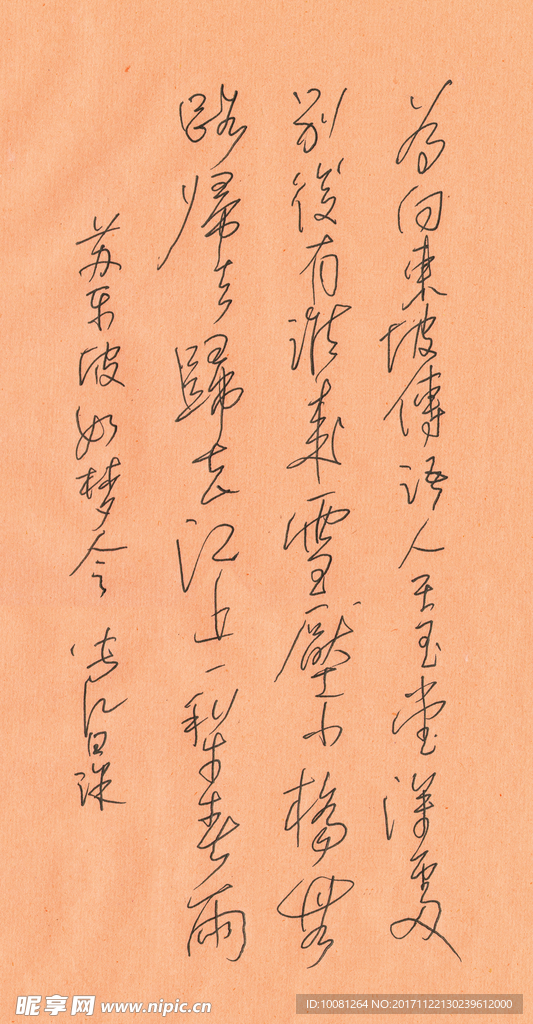 為向東坡傳語人在玉堂深處
別後有誰來雪壓小橋無
路歸去歸去江上一犁春雨
苏东坡如梦令
昵享网 www.nipic.cn
ID:10081264 NO:20171122130239612000